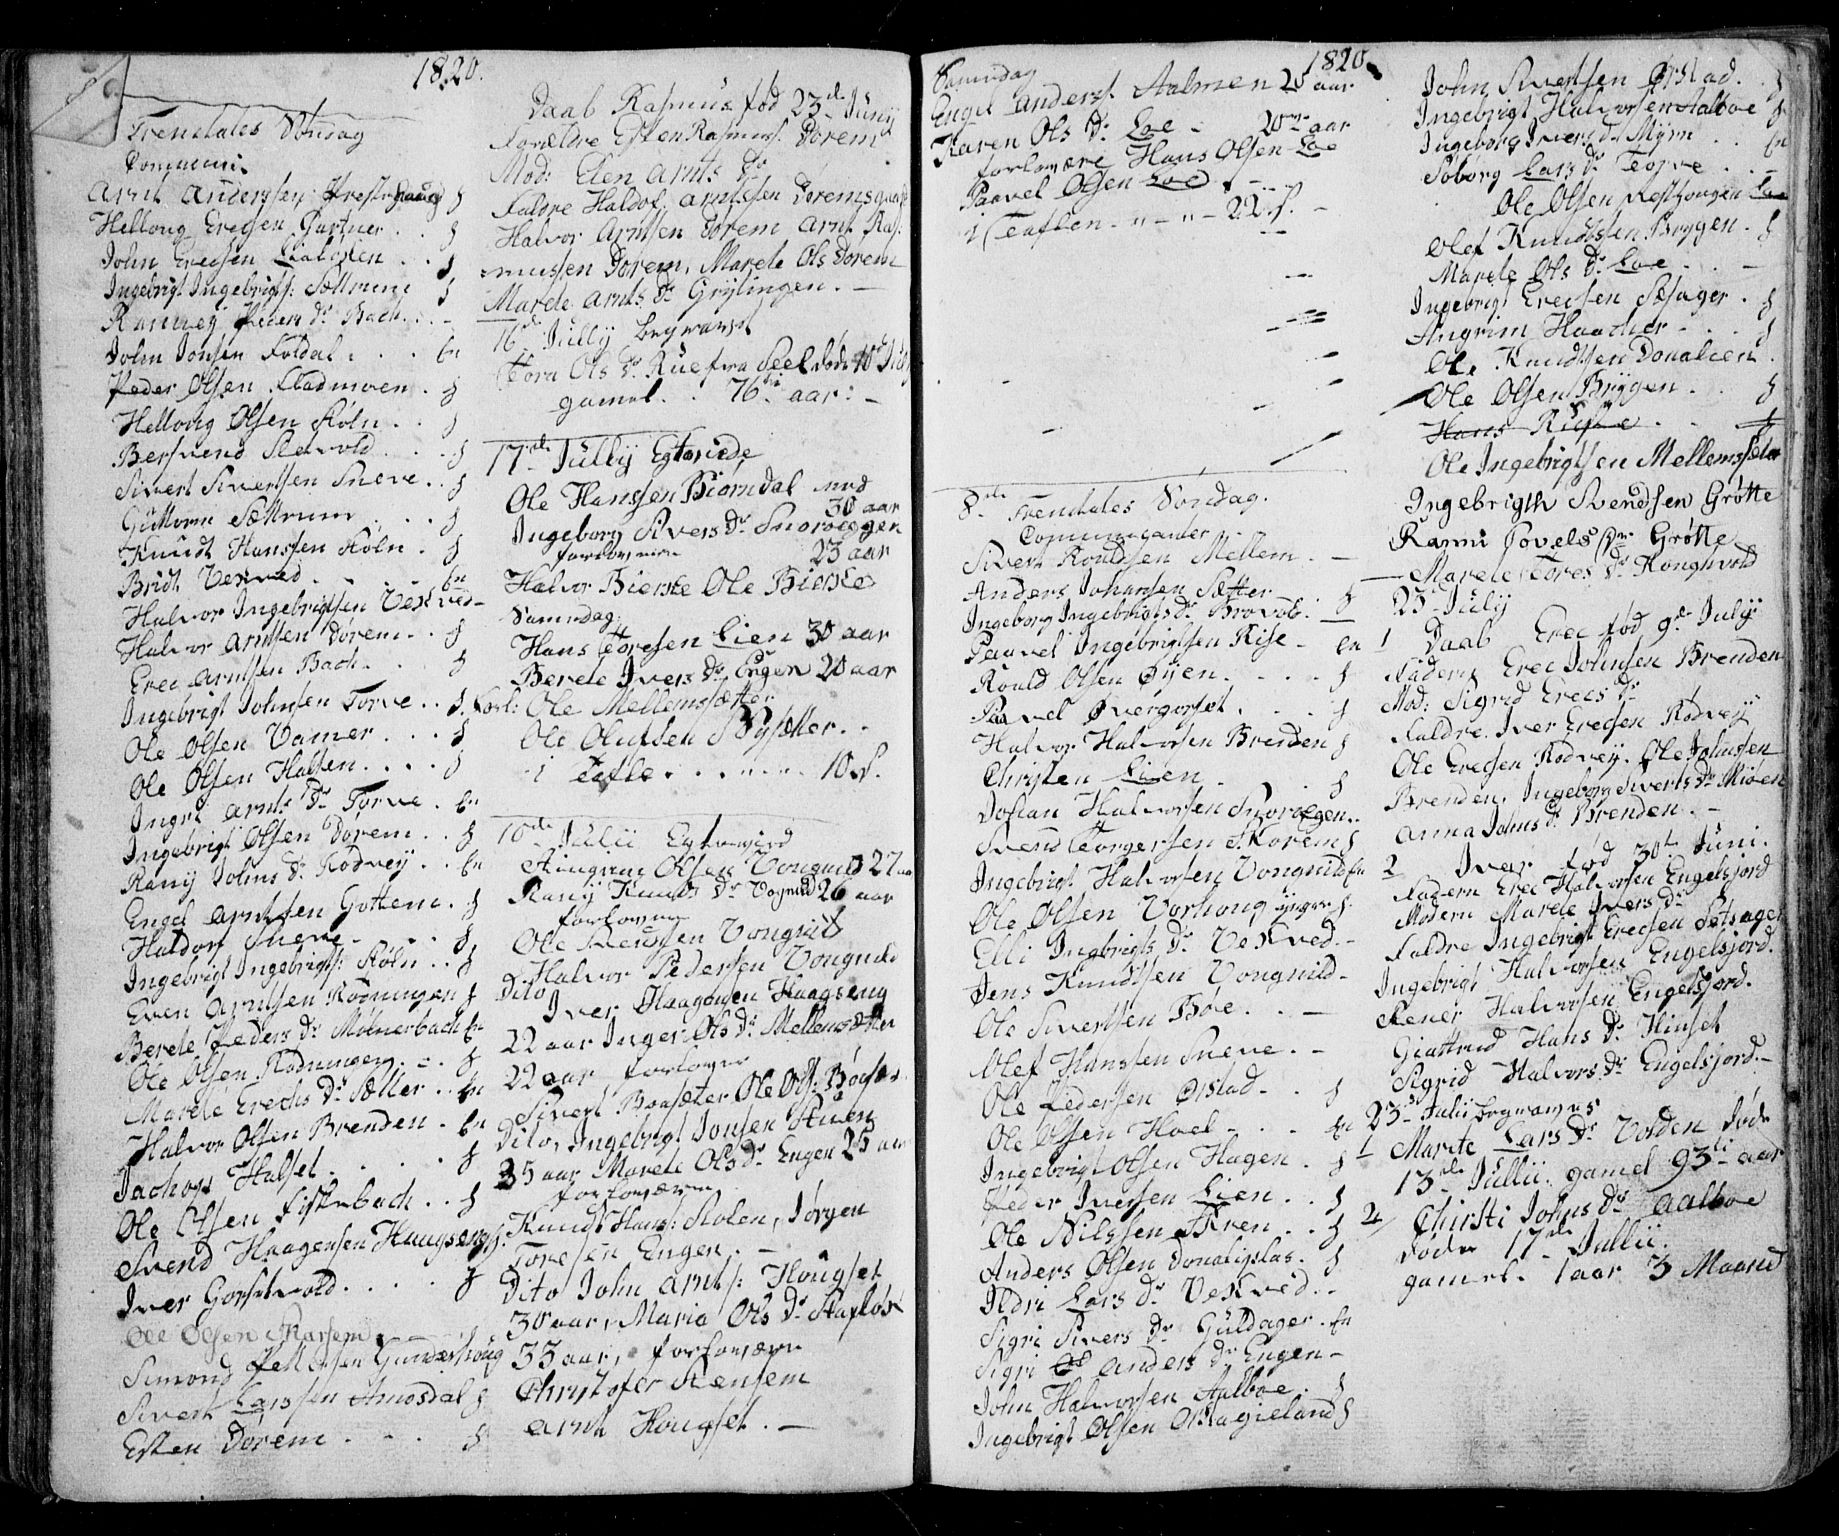 1820.
Trendtales Söndag
Communi.
Arnt Anderssen Prest
Hellvug Erecsen Gurtner . . f
John Erecsen . . f
Ingebrigt Ingebrigts: Sættrum f
Ranvey Peders Dr Bach. . -
John Jonsen Foldal . . . En
Peder Olsen Stadmoen . f
Hellvug Olsen Röln . . f
Bersvend Slevold . . . f
Sivert Sivertsen Sneve . . f
Guttorm Sættrum . . . f
Knudt Hanssen Röln . f
Bridt Vekved . . . En
Halvor Ingebrigtsen Vekved -
Halvor Arntsen Dörem . . f
Erec Arntsen Bach . . . f
Ingebrigt Johnsen Torve . . f
Ole Olsen Vamer . . . f
Ole Olsen Halsen . . . . f
Ingri Arnts Dr Torve . En
Ingebrigt Olsen Dörem . . f
Rany Johns Dr Rodvey . . En
Engel Arntsen Gottem . f
Haldor Sneve . . . f
Ingebrigt Ingebrigts: Röln . . f
Even Arntsen Rödningen f
Berete Peders Dr Mölnerbach En
Ole Olsen Rödningen . - f
Marete Erechs Dr Sætter . . En
Halvor Olsen Brenden . En
Jachop Halset . . . . f
Ole Olsen Fiskebach . . f
Svend Haagensen Haugseng f.
Iver Gorsetvold . . . f
Ole Olsen
Simond Pettersen Gunderhoug
Sivert Larssen Amosdal f
Esten Dörem . . . f
Daab Rasmus fød 23de Juny
Forældre Esten Rasmuss. Dörem
Mod: Elen Arnts Dr
Faldre Haldor Arntssen Doremsgaard
Halvor Arntsen Dorem Arnt Ras:
mussen Dorem, Marete Ols Dorem
Marete Arnts Dr Grytingen. -
16de July begravet
Tora Ols Dr Rue fra Seel döde 10de July
gamel . . 76 aar: -
17de Jully Egteviede
Ole Hanssen Biörndal med 30 aar
Ingeborg Sivers Dr Snoreggen
forlovere 23 aar
Halvor Bierke Ole Bierke
Samedag
Hans Toresen Lien 30 aar
Berete Ivers Dr Engen 20 aar
Forl: Ole Mellemsætter
Ole Olufsen Nysætter . .
1 Tafle . . . . . . 10 s.
10de Julii Egtevied
Aingrim Olsen Vongnild 27 aar
Rany Knuds Dr Vognild 26 aar
forlovere
Ole Svendsen Vongnild
Halvor Pedersen Vongnild
Dito
Iver Haagensen Haagseng
22 aar Inger Ols Dr Mellemsætter
22 aar forlovere
Sivert Boasæter Ole Ols: Boeser
Dito, Ingebrigt Jonsen Stuen
35 aar Marete Ols Dr Engen 25 aar
forlovere
Knudt Hans: Rolen, Jörgen
Toresen Engen . -
Dito John Arnts: Hougset
30 aar, Maria Ols Dr
33 aar, forlovere
Christofer Stensem
Arnt Hougset . -
1820.
Samedag
Engel Anderss. Aalmen 25 aar
Karen Ols Dr Loe - 20 aar
forlovere Hans Olsen Loe
Paavel Olsen Loe . -
1 Taflen - " - " - 22 s. -
8de Trendtales Söndag.
Communicanter
Sivert Rouldsen Mellem . -
Anders Johansen Sætter . . f
Ingeborg Ingebrigts Dr Brovold . -
Paavel Ingebrigtsen Rise - En
Rould Olsen Öyen . . . . f
Paavel Övergorset . . . f
Halvor Halvorsen Brenden f
Christen Lien . . . f
Johan Halvorsen Snoregen . .
Svend Torgersen Skorem f
Ingebrigt Halvorsen Vongnild En
Ole Olsen Vorhoug yngre f
Elli Ingbrigts Dr Vekved . -
Jens Knudtsen Vongnild -
Ole Sivertsen Boe . . -
Olef Hanssen Sneve . -
Ole Pedersen Örstad . . f
Ole Olsen Hoel - . . En
Ingebrigt Olsen Hagen . f
Peder Iversen Lien . . f
Ole Nilssen Kren . . f
Anders Olsen Donaliplas . f
Ildri Lars Dr Vekved . .
Sigri Sivers Dr Guldager . En
Sigri Anders Dr Engen -
John Halvorsen Aalboe . f
Ingebrigt Olsen f
John Sivertsen Örstad . f
Ingebrigt Halvorsen Aalboe f
Ingeborg Ivers Dr Myrn . . En
Söborg Lars Dr Torve . . -
Ole Olsen Loe
Olef Knudtsen Bryggen . f
Marete Ols Dr Loe . -
Ingebrigt Erecsen Sæsager . f
Angrim Haacher . . . f
Ole Knudtsen Donalien .
Ole Olsen Bryggen . . f
Hans Rise . . f
Ole Ingebrigtsen Mellemsæter
Ingebrigth Svendsen Grötte
Ranni Povels Dr Grötte
Marete Tores Dr Konghvold
23 July
1 Daab Erec fød 9de July
Faderen Erec Johnsen Brenden
Mod: Sigrid Erecs Dr
Faldre. Iver Erecsen Rodvey
Ole Erecsen Rodvey. Ole Johnssen
Brenden. Ingeborg Siverts Dr Mioen
Anna Johns Dr Brenden . -
2 Iver fød 30te Juni.
Faderen Erec Halvorsen Engelsjord
Modern Marete Ivers Dr
Faldre Ingebrigt Erecsen Setsager
Ingebrigt Halvorsen Engelsjord.
Stener Halvorsen Engelsjord.
Giattrud Hans Dr Hinset
Sigrid Halvors Dr Engelsjord. -
23de Julii begraves
1 Marete Lars Dr Volden döde
13de Jullii gamel 93 aar
2 Christi Johns Dr Aalboe
döde 17de Jullii.
gamel. 1 aar 3 Maaned